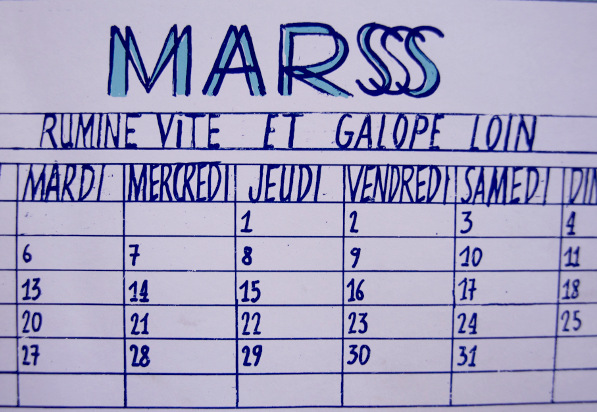 MARSSS
RUMINE VITE ET GALOPE LOIN
MARDI MERCREDI JEUDI VENDREDI SAMEDI DIM
1 2 3 4
6 7 8 9 10 11
13 14 15 16 17 18
20 21 22 23 24 25
27 28 29 30 31